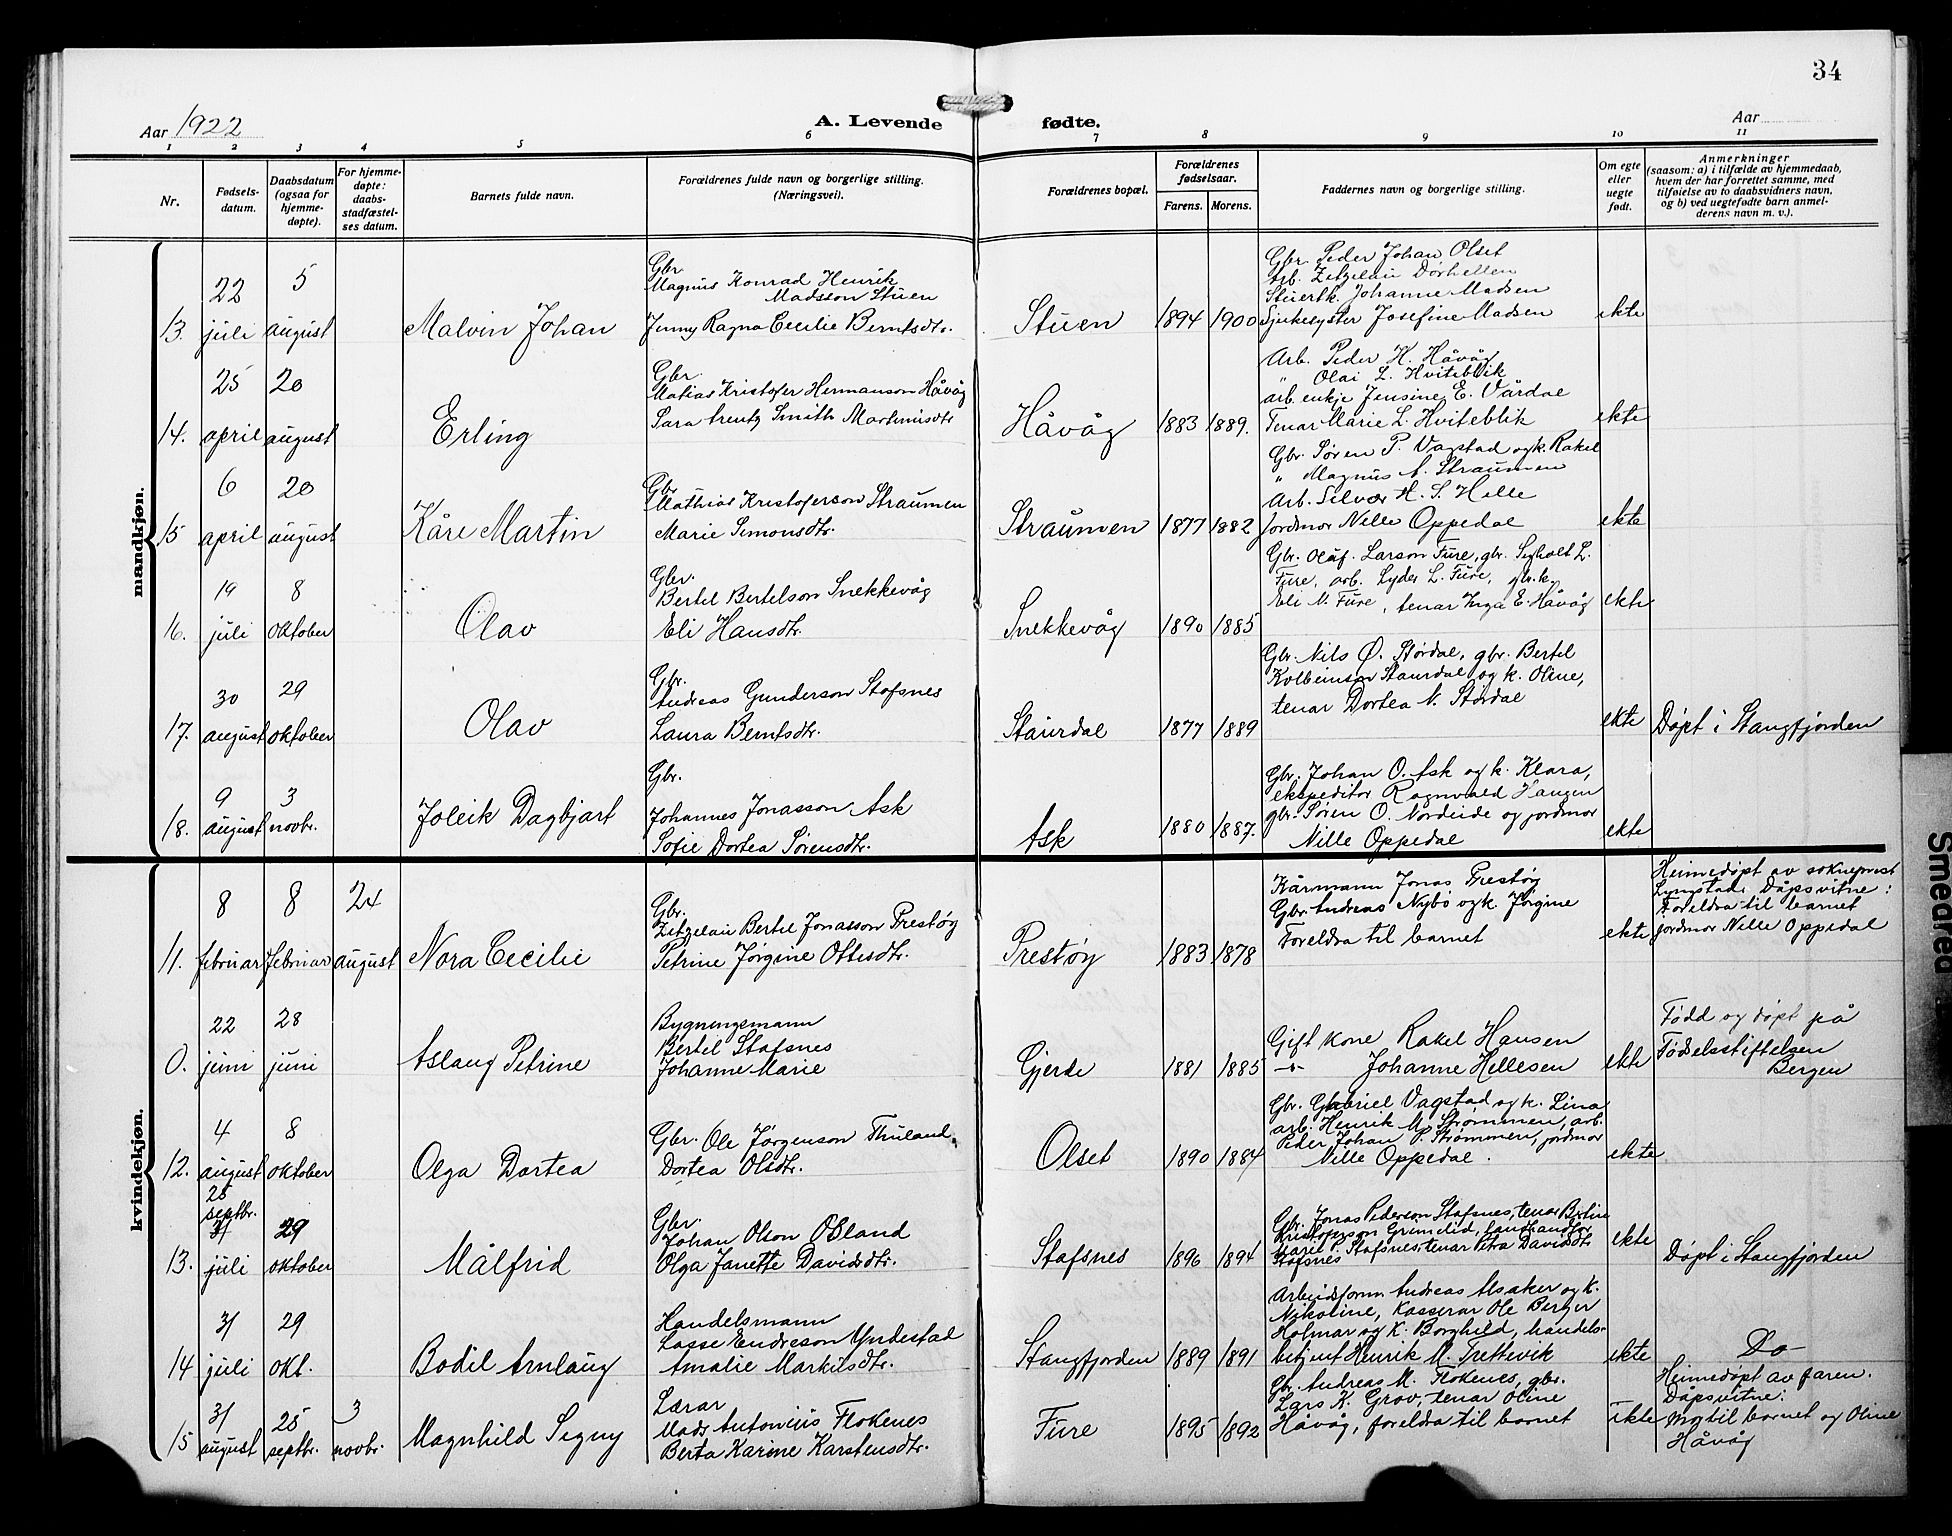 34
Aar 1922
A. Levende fødte.
Aar
1 2 3 4 5 6 7 8 9 10 11
Nr.
Fødsels-
datum.
Daabsdatum
(ogsaa for
hjemme-
døpte).
For hjemme-
døpte:
daabs-
stadfæstel-
ses datum.
Barnets fulde navn.
Forældrenes fulde navn og borgerlige stilling.
(Næringsvei).
Forældrenes bopæl.
Forældrenes
fødselsaar.
Farens. Morens.
Faddernes navn og borgerlige stilling.
Om egte
eller
uegte
født.
Anmerkninger
(saasom: a) i tilfælde av hjemmedaab,
hvem der har forrettet samme, med
tilføielse av to daabsvidners navn,
og b) ved uegtefødte barn anmel-
derens navn m. v.).
mandkjøn.
13. 22 juli
5 august
Malvin Johan
Gbr.
Magnus Konrad Henrik
Madsson Stuen
Jenny Ragna Cecilie Berntsdtr.
Stuen
1894 1900
Gbr. Peder Johan Olset
Arb. Zetzelau Dørhellen
Stuertk. Johanne Madsen
Sjukesyster Josefine Madsen
ekte
14. 25 april
20 august
Erling
Gbr.
Matias Kristofer Hermanson Håvåg
Sara Arentz Smith Martinusdtr
Håvåg
1883 1889.
Arb. Peder H. Håvåg
" Olai L. Hviteblik
arb. enkje Jensine E. Vårdal
Tenar Marie L. Hviteblik
ekte
15 6 april
20 august
Kåre Martin
Gbr.
Mathias Kristoferson Straumen
Marie Simonsdtr.
Straumen
1877 1882
Gbr. Søren P. Vagstad og k. Rakel
" Magnus A. Straumen
Arb. Silvær H. S. Helle
Jordmor Nille Oppedal
ekte
16. 19 juli
8 oktober
Olav
Gbr.
Bertel Bertelson Snekkevåg
Eli Hansdtr.
Snekkevåg
1890 1885
Gbr. Oluf. Larson Fure, gbr. Sighalt L.
Fure, arb. Lyder L. Fure, gbr.k.
Eli N. Fure, tenar Inga E. Håvåg
ekte
17. 30 august
29 oktober
Olav
Gbr.
Andreas Gunderson Stafsnes
Laura Berntsdtr.
Staurdal
1877 1889
Gbr. Nils Ø. Stordal, gbr. Bertel
Kolbeinson Staurdal og k. Oline,
tenar Dortea N. Stordal
ekte
Døpt i Stangfjorden
18. 9 august
3 novbr.
Joleik Dagbjart
Gbr.
Johannes Jonasson Ask
Sofie Dortea Sørensdtr.
Ask
1880 1887.
Gbr. Johan O. Ask og k. Klara,
ekspeditor Ragnvald Haugen
gbr. Søren O. Nordeide og jordmor
Nille Oppedal
ekte
kvindekjøn.
11. 8 februar
8 februar
24 august
Nora Cecilie
Gbr.
Zetzelau Bertel Jonasson Prestøy
Petrine Jørgine Ottesdtr.
Prestøy
1883 1878
Kårmann Jonas Prestøy
Gbr. Andreas Nybø og k. Jørgine
Foreldra til barnet
ekte
Heimedøpt av sokneprest
Lyngstad. Dåpsvitne:
Foreldra til barnet
jordmor Nille Oppedal
0. 22 juni
28 juni
Aslaug Petrine
Bygningsmann
Bertel Stafsnes
Johanne Marie
Gjerde
1881 1885
Gift kone Rakel Hansen
-"- Johanne Hellesen
ekte
Fødd og døpt på
Fødselsstiftelsen
Bergen
12. 4 august
8 oktober
Olga Dortea
Gbr. Ole Jørgenson Thuland
Dortea Olsdtr.
Olset
1890 1884
Gbr. Gabriel Vagstad og k. Lina
arb. Henrik M. Strømmen, arb.
Peder Johan P. Strømmen, jordmor
Nille Oppedal.
ekte
13. 25 septbr.
31 juli
29 oktober
Målfrid
Gbr.
Johan Olson Osland
Olga Janette Davidsdtr.
Stafsnes
1896 1894
Gbr. Jonas Pederson Stafsnes, tenar
Kristoferson Grimelid, landhandlar
Marie P. Stafsnes, tenar Petra Davidsdtr
Stafsnes
ekte
Døpt i Stangfjorden
14 31 juli
29 okt.
Bodil Arnlaug
Handelsmann
Lasse Endreson Yndestad
Amalie Markusdtr.
Stangfjorden
1889 1891
Arbeidsform. Andreas Alsaker og k.
Nikoline, Kasserar Ole Berger
Holmar og k. Borghild, handels-
betjent Henrik M. Trettevik
ekte
Do-
15 31 august
25 septbr.
3 novbr.
Magnhild Signy
Lærar
Mads Antonius Flokenes
Berta Karine Karstensdtr.
Fure
1895 1892
Gbr. Andreas M. Flokenes, gbr.
Lars K. Grov, tenar Oline
Håvåg, foreldra til barnet
ekte
Heimedøpt av faren.
Dåpsvitne:
Mor til barnet og Oline
Håvåg
Smedred